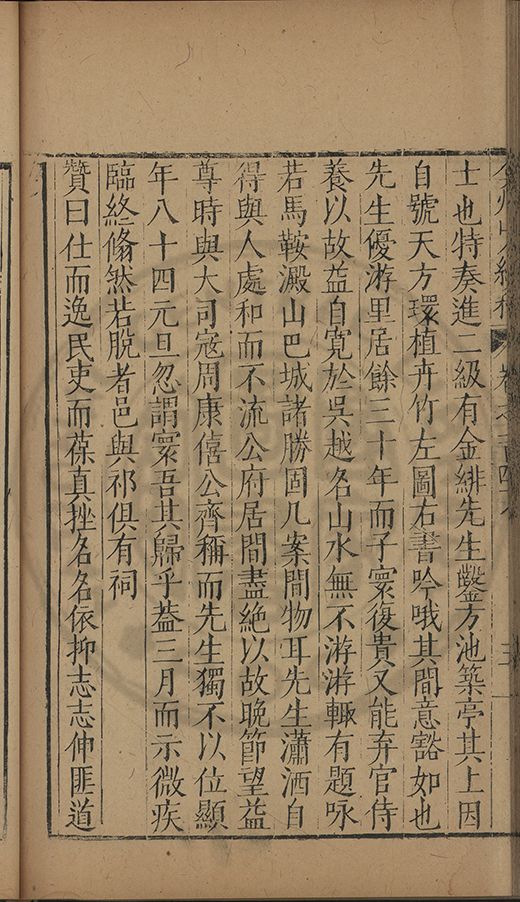 士也特奏進二級有金緋先生鑿方池築亭其上因
自號天方環植卉竹左圖右書吟哦其間意豁如也
先生優游里居餘三十年而子寰復貴又能弃官侍
養以故益自寬於吳越名山水無不游游輙有題咏
若馬鞍澱山巴城諸勝固几案間物耳先生瀟洒自
得與人處和而不流公府居間盡絶以故晚節望益
尊時與大司寇周康僖公齊稱而先生獨不以位顯
年八十四元旦忽謂寰吾其歸乎葢三月而示微疾
臨終翛然若脫者邑與祁俱有祠
贊曰仕而逸民吏而葆真挫名名依抑志志伸匪道